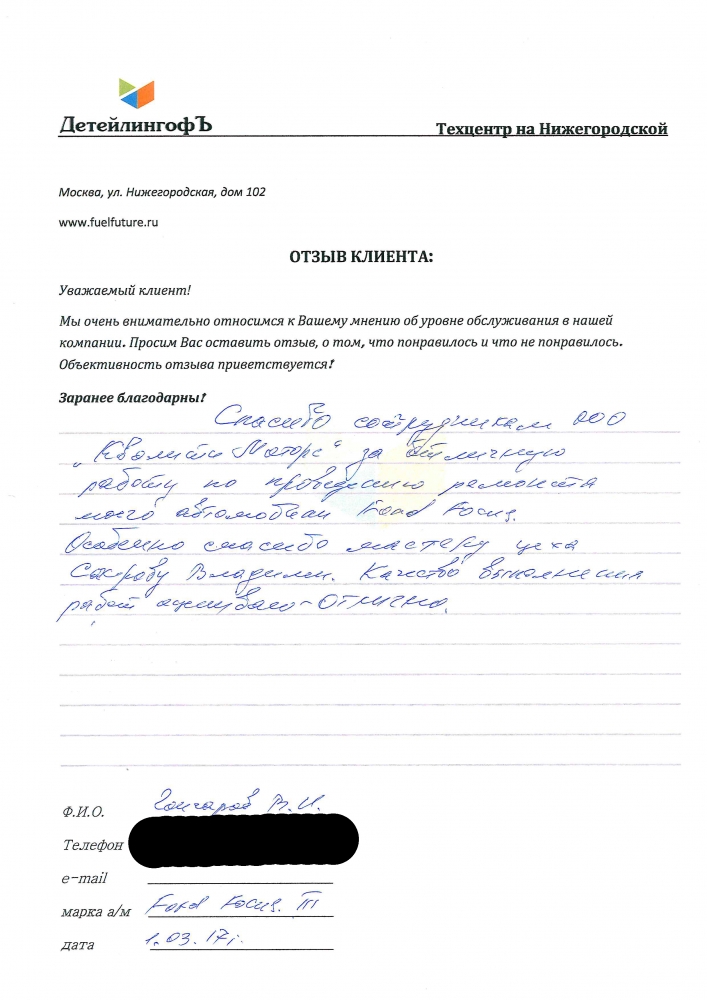 ДетейлингофЪ
Техцентр на Нижегородской
Москва, ул. Нижегородская, дом 102
www.fuelfuture.ru
ОТЗЫВ КЛИЕНТА:
Уважаемый клиент!
Мы очень внимательно относимся к Вашему мнению об уровне обслуживания в нашей
компании. Просим Вас оставить отзыв, о том, что понравилось и что не понравилось.
Объективность отзыва приветствуется!
Заранее благодарны!
Спасибо сотрудникам ООО
„Кволити Моторс“ за отличную
работу по проведению ремонта
моего автомобиля Ford Focus.
Особенно спасибо мастеру цеха
Владими. Качество выполнения
работ оцениваю - Отлично.
Ф.И.О. Гончаров В.И.
Телефон
e-mail
марка а/м Ford Focus III
дата 1.03.17г.